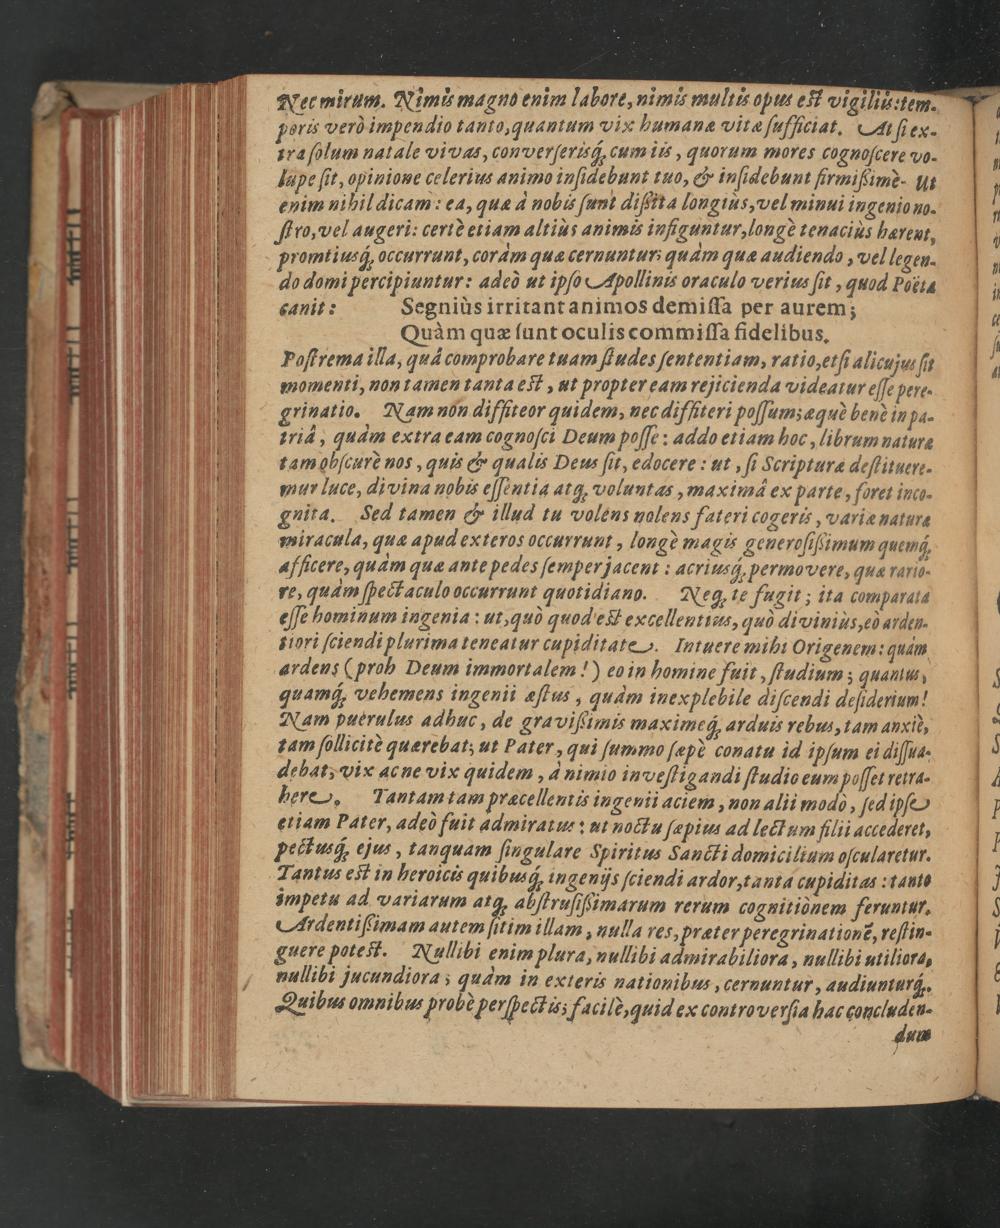 Nec mirum. Nimis magno enim labore, nimis multis opus est vigiliis: tem-
poris verò impendio tanto, quantum vix humanæ vitæ ſufficiat. At ſi ex-
tra ſolum natale vivas, converſerisq́; cum iis, quorum mores cognoſcere vo-
lupe ſit, opinione celerius animo inſidebunt tuo, & inſidebunt firmißimè. Ut
enim nihil dicam: ea, quæ à nobis ſunt dißita longiùs, vel minui ingenio no-
ſtro, vel augeri: certè etiam altiùs animis infiguntur, longè tenaciùs hærent,
promtiusq́; occurrunt, coràm quæ cernuntur; quàm quæ audiendo, vel legen-
do domi percipiuntur: adeò ut ipſo Apollinis oraculo verius ſit, quod Poëta
canit: Segniùs irritant animos demiſſa per aurem;
Quàm quæ ſunt oculis commiſſa fidelibus.
Poſtrema illa, quâ comprobare tuam ſtudes ſententiam, ratio, etſi alicujus ſit
momenti, non tamen tanta est, ut propter eam rejicienda videatur eſſe pere-
grinatio. Nam non diffiteor quidem, nec diffiteri poſſum; æquè benè in pa-
triâ, quàm extra eam cognoſci Deum poſſe: addo etiam hoc, librum naturæ
tam obſcurè nos, quis & qualis Deus ſit, edocere: ut, ſi Scripturæ deſtituere-
mur luce, divina nobis eſſentia atq; voluntas, maximâ ex parte, foret inco-
gnita. Sed tamen & illud tu volens nolens fateri cogeris, variæ naturæ
miracula, quæ apud exteros occurrunt, longè magis generoſißimum quemq́;
afficere, quàm quæ ante pedes ſemper jacent: acriusq́; permovere, quæ rario-
re, quàm ſpectaculo occurrunt quotidiano. Neq; te fugit; ita comparata
eſſe hominum ingenia: ut, quò quod est excellentius, quò diviniùs, eò arden-
tiori ſciendi plurima teneatur cupiditate. Intuere mihi Origenem: quàm
ardens (proh Deum immortalem!) eo in homine fuit, ſtudium; quantus,
quamq́; vehemens ingenii æſtus, quàm inexplebile diſcendi deſiderium!
Nam puerulus adhuc, de gravißimis maximeq́; arduis rebus, tam anxiè,
tam ſollicitè quærebat; ut Pater, qui ſummo ſæpè conatu id ipſum ei diſſua-
debat; vix ac ne vix quidem, à nimio inveſtigandi ſtudio eum poſſet retra-
here. Tantam tam præcellentis ingenii aciem, non alii modò, ſed ipſe
etiam Pater, adeò fuit admiratus: ut noctu ſæpius ad lectum filii accederet,
pectusq́; ejus, tanquam ſingulare Spiritus Sancti domicilium oſcularetur.
Tantus est in heroicis quibusq́; ingenijs ſciendi ardor, tanta cupiditas: tanto
impetu ad variarum atq; abſtruſißimarum rerum cognitiònem feruntur.
Ardentißimam autem ſitim illam, nulla res, præter peregrinationẽ, reſtin-
guere potest. Nullibi enim plura, nullibi admirabiliora, nullibi utiliora,
nullibi jucundiora; quàm in exteris nationibus, cernuntur, audiunturq́;.
Quibus omnibus probè perſpectis; facilè, quid ex controverſia hac concluden-
dum